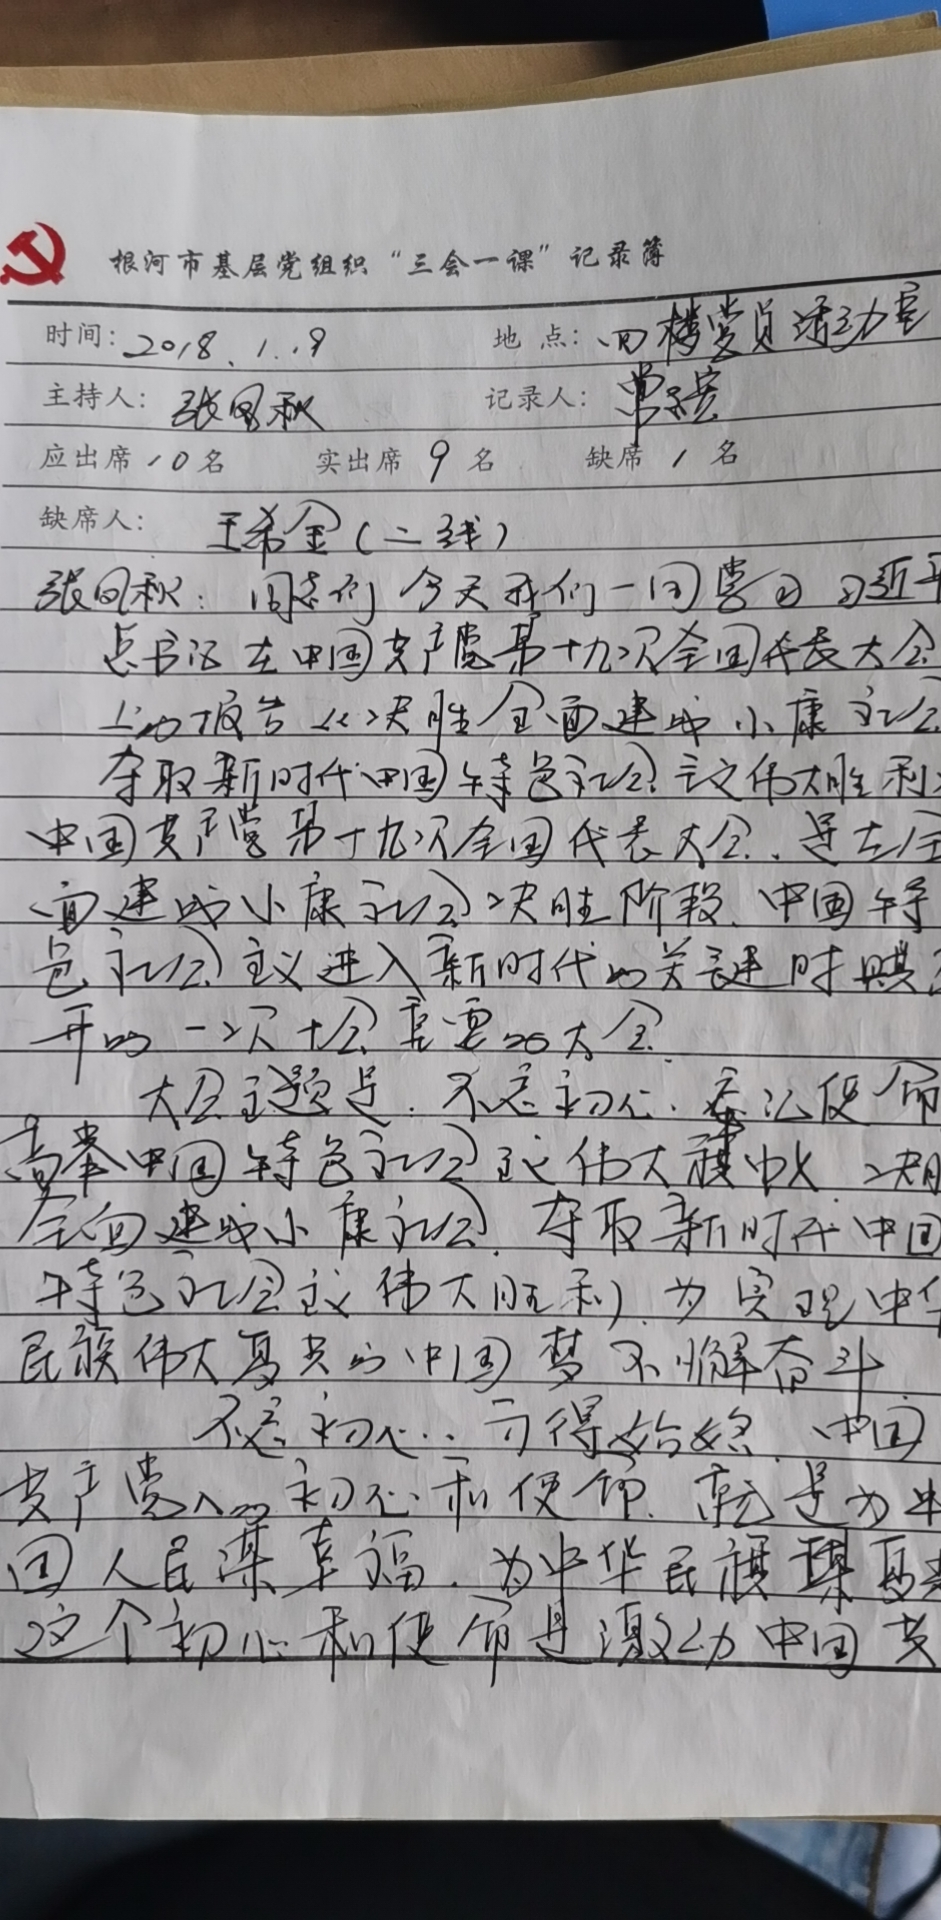 根河市基层党组织“三会一课”记录簿
时间：2018.1.9 地点：四楼党员活动室
主持人：张国秋 记录人：常宏
应出席10名 实出席9名 缺席1名
缺席人：王希金（二线）
张国秋：同志们今天我们一同学习习近平
总书记在中国共产党第十九次全国代表大会
上的报告《决胜全面建成小康社会
夺取新时代中国特色社会主义伟大胜利》
中国共产党第十九次全国代表大会，是在全
面建成小康社会决胜阶段、中国特
色社会主义进入新时代的关键时期召
开的一次十分重要的大会。
大会主题是：不忘初心，牢记使命
高举中国特色社会主义伟大旗帜，决胜
全面建成小康社会，夺取新时代中国
特色社会主义伟大胜利，为实现中华
民族伟大复兴的中国梦不懈奋斗
不忘初心，方得始终，中国
共产党人的初心和使命，就是为中
国人民谋幸福，为中华民族谋复兴
这个初心和使命是激励中国共